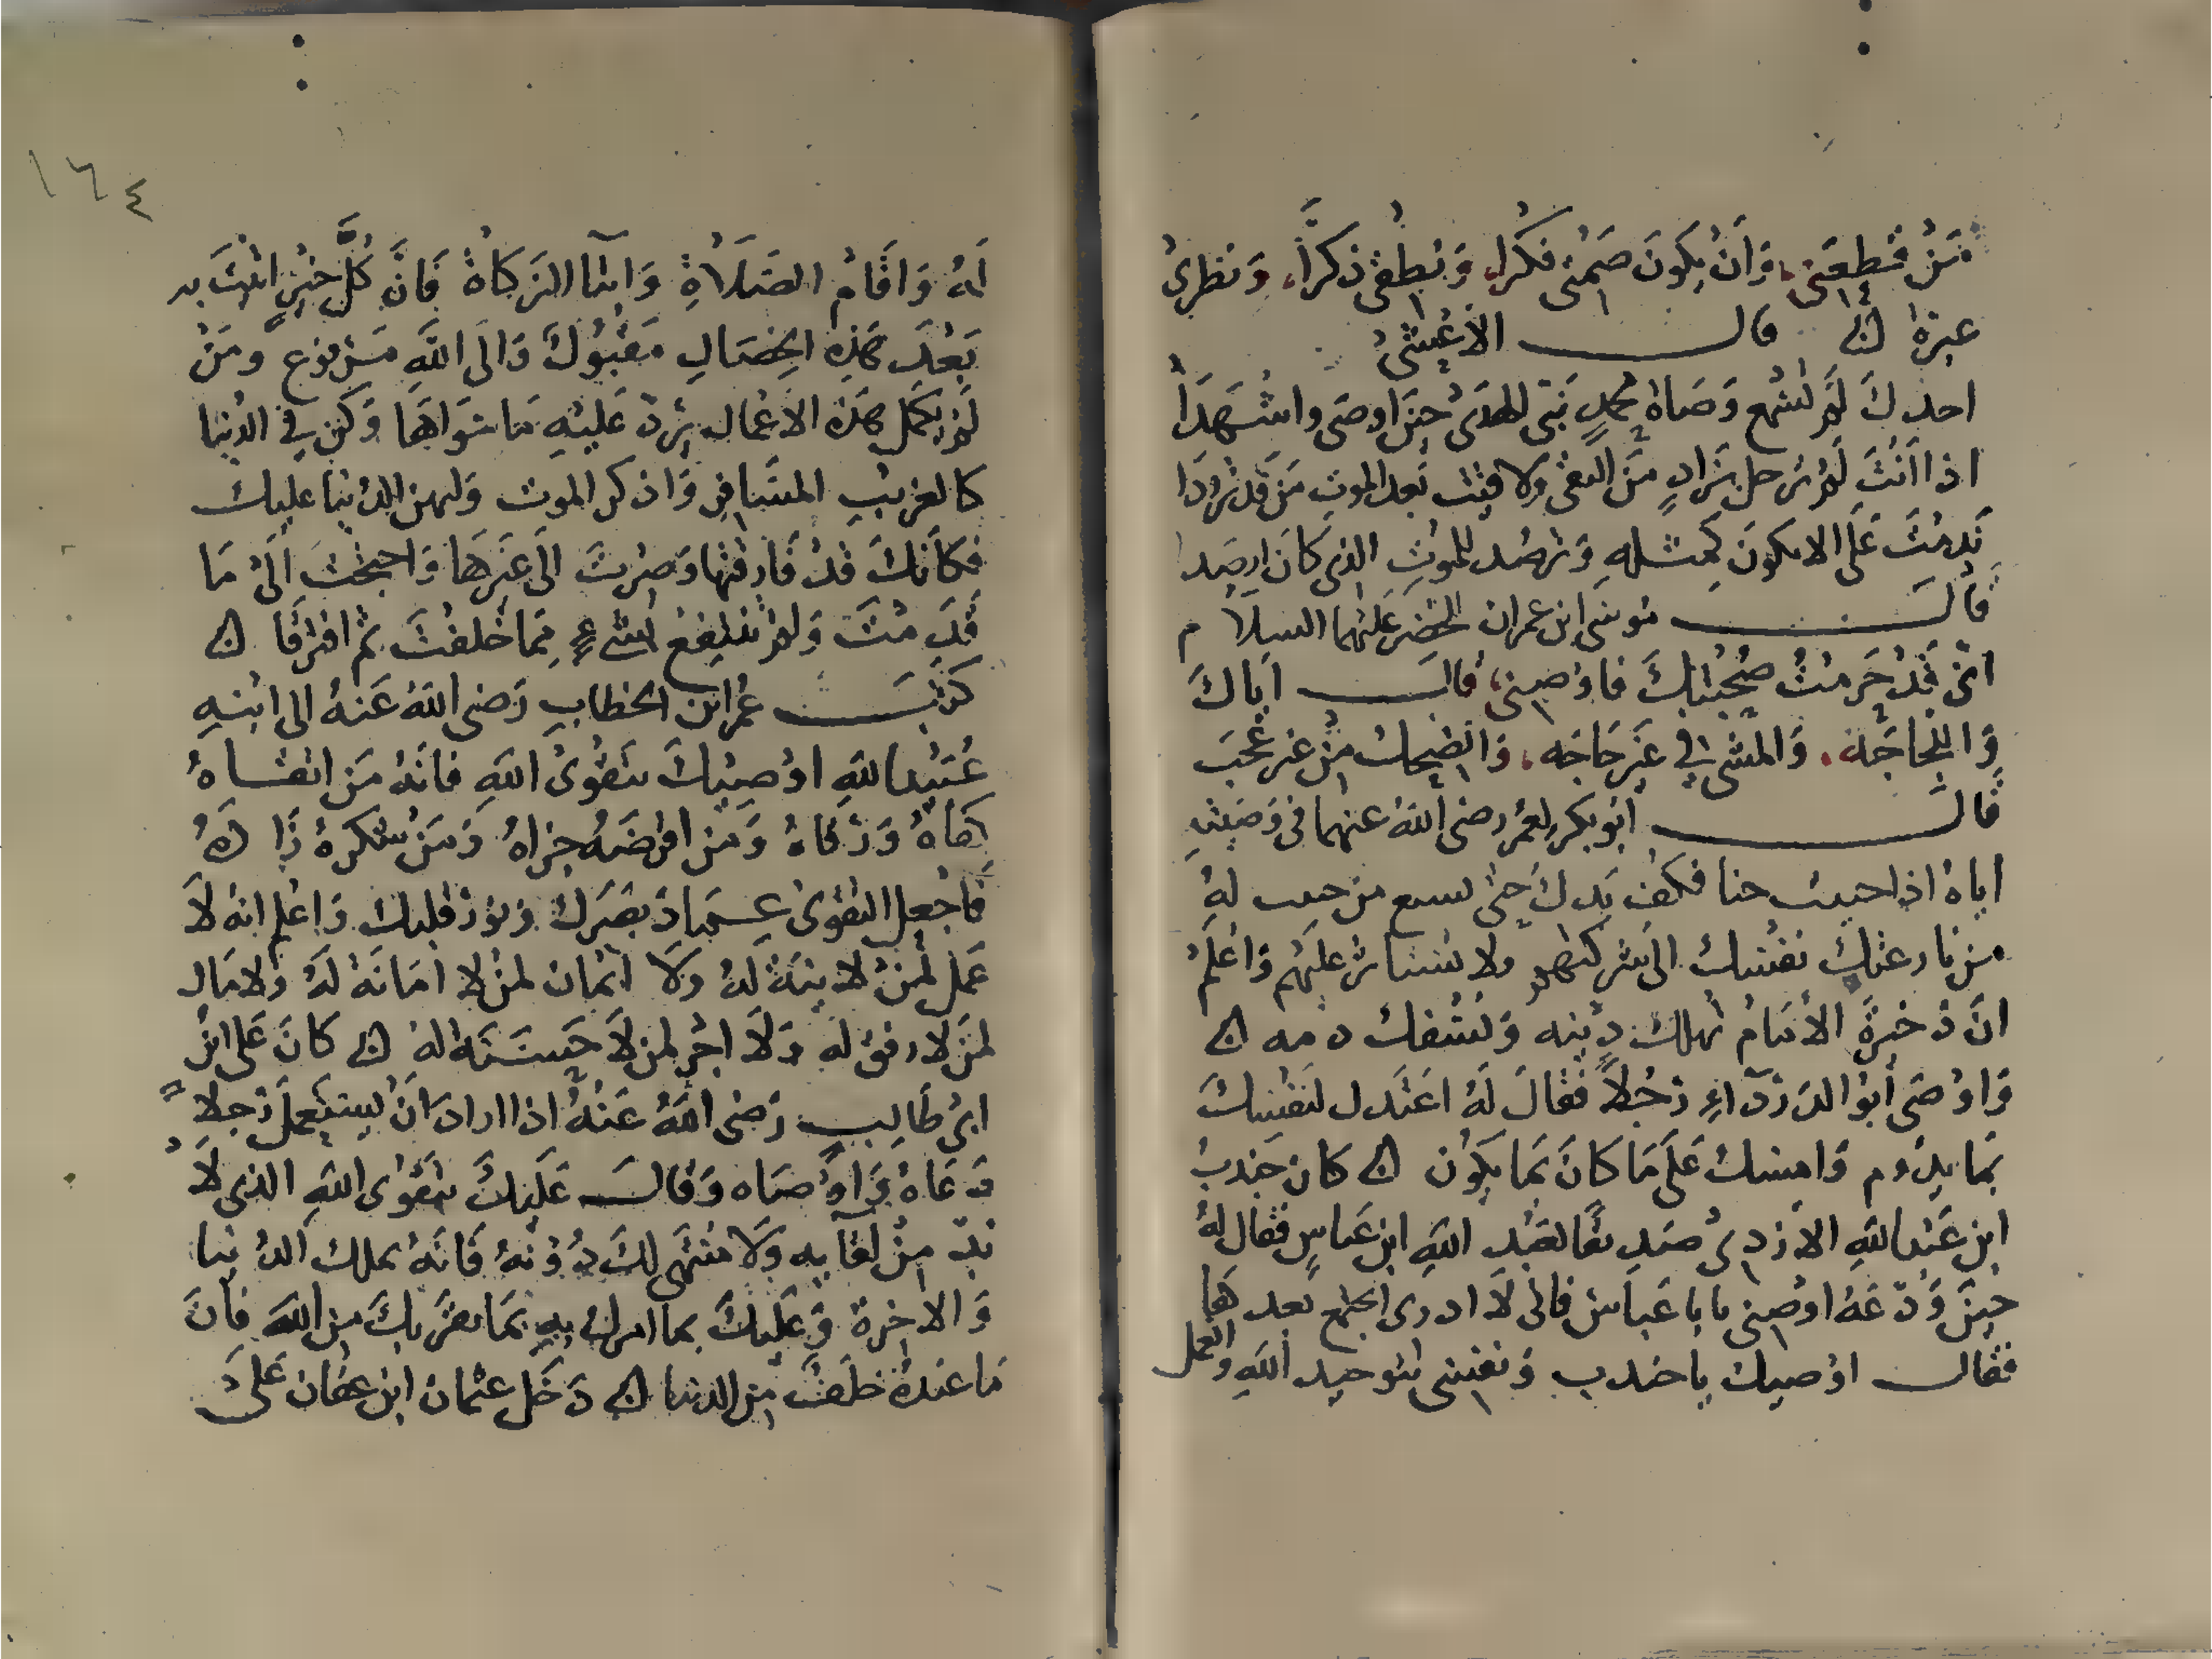 مَنْ قَطعَنى، وَاَنْ يكونَ صَمْتى فكْرا، وَنطقى ذكرًا، وَنظرى
عبرة قال الأعْشى
اجدك لَم تَسْمع وَصَاة محمدٍ نَبىّ الهدىْ حينَ اوصى واشْهَدَا
اذا اَنْتَ لم ترحل بزادٍ منَ التقى ولاقيت بَعد الموتِ مَن قد تزودا
نَدِمْتَ عَلى الا تكونَ كمثلهِ وَترصد للموْتِ الذى كانَ ارصدا
قالَ موسى ابن عمران للخضر عَليْهما السلام
انى قَدْ حَرمْتُ صُحْبتك فاوْصنى، قالَ اياك
وَاللجَاجَه، وَالمشى فى غَير حَاجَه، وَالضحك منْ غير عُجب
قال ابُو بكر لعمر رضى الله عنهما فى وَصيته
اياه اذا جنيت جنا فكف يَدك حَتى يسبع من جنيت لهُ
من نازعتك نفْسك الى شركتهم ولا تستأثر عليهم وَاعْلَمْ
انّ ذخيرَة الامَامْ تهلك دِيْنه وَتسْفك دمه
وَاوْصَى أبُو الدرْدَآءِ رَجُلاً فقالَ لَهُ اعتدل لنَفْسك
بمَا يدُوم وَامسك عَلَى مَا كانَ بمَا يَكون كان جندبُ
ابن عَبْد الله الازدى صَديقًا لعَبْدِ الله ابن عَباسٍ فقال لهُ
حينَ وَدّعَهُ اوْصنى يابا عَباس فانى لَا ادرى انجتمع بَعد هَا
فقال اوْصيك ياجندب وَنفسى بتوحيد اللهِ والعمل
١٦٤
لهُ وَاقَام الصَلاةِ وَايتاء الزكاةْ فَانَّ كُلَّ خيرٍ اتيْتَ به
بَعْدَ هَذِهِ الخصَالِ مَقبُوْلٌ وَالَى اللَّهِ مَرفوع وَمَنْ
لَمْ يكمل هَذه الاعْمال يُرَدّ عَليْهِ مَا سَوَاهَا وَكن فِى الدُنيا
كالغريْبِ المسَافر وَاذكر الموت وَلتهن الدُنيا عليك
فكانكَ قَدْ فَارقتها وَصرْتَ الَى غَيرهَا وَاحتجْتَ الىْ مَا
قَدمْتَ وَلم تنتفعْ بشىءٍ ممَا خَلفْتَ ثم افترقَا
كتبَ عُمرُ ابن الخطابِ رَضى الله عَنهُ الى ابْنهِ
عَبْد اللهِ اوْصيْكَ بتَقْوىْ اللهِ فانهُ مَن اتقاهُ
كفاهُ وَوَقاهُ وَمَن اقرضَهُ جزاهُ وَمَنْ شكرهُ زَادهُ
فَاجعل التقوىْ عمَادَ بَصَرك وَنورَ قلبك وَاعلم انهُ لَا
عَمل لمنْ لا نيّةَ لهُ وَلَا ايْمانَ لمنْ لا امَانَةَ لَهُ وَلا مَال
لمَن لا رفق لَه وَلَا اجْر لمن لَا حَسَنَة لهُ كانَ عَلى ابْن
ابى طَالب رَضى اللهُ عَنْهُ اذا ارادَ انْ يستعملَ رَجلًا
دَعَاهُ وَاوْصَاه وَقالَ عَليْكَ بتَقْوى اللهِ الذى لَا
بدّ منْ لقآيه وَلَا منتهى لكَ دُوْنهُ فَانهُ يملك الدُنيا
وَالاخرة وَعَليكَ بما امرك به بمَا يقرّبكَ من الله فَانَ
مَا عندهُ خلفٌ من الدنيا دَخَل عثمان ابن عفان عَلَى